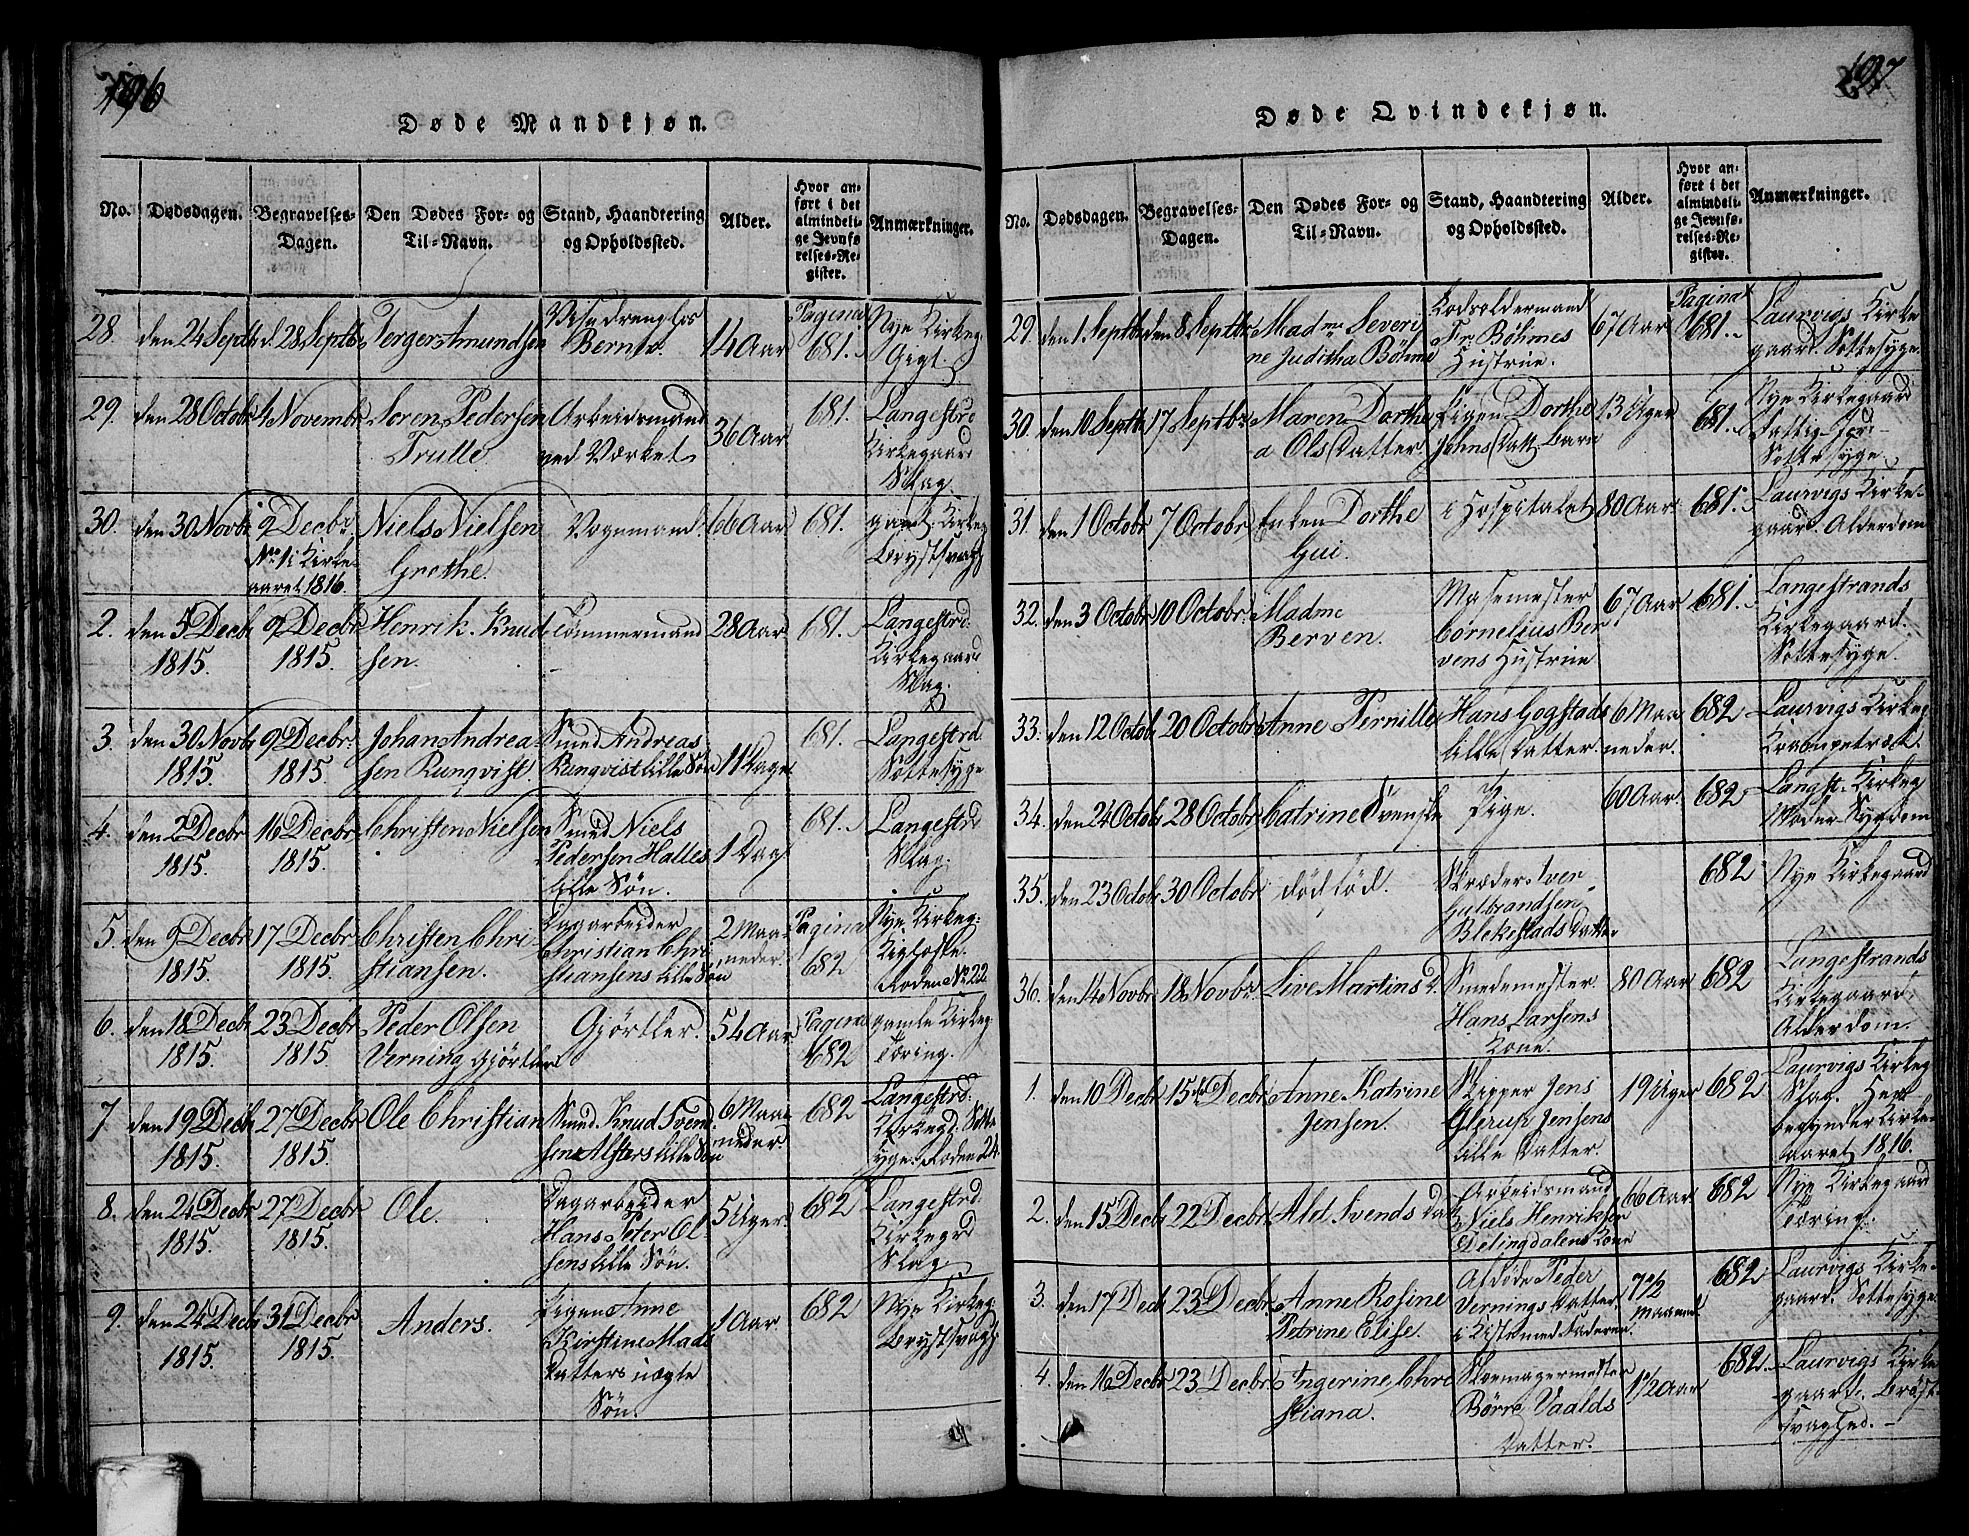 196
Døde Mandkjøn.
No.
Dødsdagen.
Begravelses-
Dagen.
Den Dødes For- og
Til-Navn.
Stand, Haandtering
og Opholdssted.
Alder.
Hvor an-
ført i det
almindeli-
ge Jevnfø
relses-Re-
gister.
Anmærkninger.
28. den 24 Septbr d. 28 Septbr Terger Amundsen
Bernev. 14 Aar Pagina 681. Nye Kirkeg.
Gigt.
29. den 28 Octobr 4 Novembr Søren Pedersen
Trulle
Arbeidsmand
ved Værket 36 Aar 681. Langestrd
Kirkegaard
Slag.
30. den 30 Novbr 9 Decbr.
No 1 i Kirke-
aaret 1816.
Niels Nielsen
Grothe.
Vognmand. 66 Aar 681. gamle Kirkeg
Brystsvagh
2. den 5 Decbr
1815.
9 Decbr
1815.
Henrik Knud-
sen.
Tømmermand 28 Aar 681. Langestrd.
Kirkegaard
Slag.
3. den 30 Novbr
1815.
9 Decbr.
1815.
Johan Andrea-
sen Runqvist.
Smed Andreas
Runqvist lille Søn 11 Dage 681. Langestrd
Sottesyge
4. den 2 Decbr
1815.
16 Decbr
1815.
Christen Nielsen
Smed Niels
Pedersen Halles
lille Søn. 1 Dag 681. Langestrd
Slag.
5. den 9 Decbr
1815.
17 Decbr
1815.
Christen Chri-
stiansen.
Dagarbeider
Christian Chri-
stiansens lille Søn
2 Maa-
neder.
Pagina
682
Nye Kirkeg.
Kighoste.
Roden No 22.
6. den 18 Decbr
1815.
23 Decbr
1815.
Peder Olsen
Verning Gjørtler
Gjørtler. 54 Aar Pagina
682
gamle Kirkeg
Tæring.
7 den 19 Decbr
1815.
27 Decbr
1815.
Ole Christian
Smed Knud Svend-
sen Alsters lille Søn
6 Maa-
neder.
682 Langestrd.
Kirkegd. Sotte-
syge. Roden 24.
8. den 24 Decbr
1815.
27 Decbr
1815.
Ole.
Dagarbeider
Hans Peter Ol-
sens lille Søn.
5 Uger. 682 Langestrd.
Kirkegrd
Slag.
9. den 24 Decbr
1815.
31 Decbr
1815.
Anders.
Pigen Anne
Kirstine Mads
Datters uægte
Søn.
1 Aar 682 Nye Kirkeg
Brystsvagh
197
Døde Qvindekjøn.
No.
Dødsdagen.
Begravelses-
Dagen.
Den Dødes For- og
Til-Navn.
Stand, Haandtering
og Opholdssted.
Alder.
Hvor an-
ført i det
almindeli-
ge Jevnfø-
relses-Re-
gister.
Anmærkninger.
29. den 1 Septbr den 8 Septbr Madme Severi-
ne Juditha Bøhme
Fr Bøhmes
Hustrue.
67 Aar Pagina
681. Laurvigs Kirke
gaard. Sottesyge.
30. den 10 Septbr 17 Septbr Maren Dorthe
a Ols Datter
Pigen Dorthe
Johns Datt. Barn
13 Uger 681. Nye Kirkegaard
Fattig Jord-
Sottesyge.
31. den 1 Octobr 7 Octobr Enken Dorthe
Gui.
i Hospitalet 80 Aar. 681. Laurvigs Kirke-
gaard. Alderdom
32. den 3 Octobr 10 Octobr. Madme
Berven.
Masemester
Cornelius Ber
vens Hustrue
67 Aar 681. Langestrands
Kirkegaard.
Sottesyge.
33. den 12 Octobr 20 Octobr Anne Pernille
Hans Gogstads
lille Datter.
6 Maa
neder.
682 Laurvigs Kirkeg
Krampetræk.
34. den 24 Octobr 28 Octobr Catrine Svenske
Pige. 60 Aar. 682 Langst. Kirkeg
Moder-Sygdom
35. den 23 Octobr 30 Octobr dødfød.
Skræder Iver
Gulbrandsen
Blekestads Datter
682 Nye Kirkegaard
36. den 14 Novbr 18 Novbr. Live Martins D.
Smedemester
Hans Larsens
Kone.
80 Aar 682 Langestrands
Kirkegaard
Alderdom.
1. den 10 Decbr 15de Decbr Anne Katrine
Jensen.
Skipper Jens
Glerup Jensens
lille Datter.
19 Uger 682 Laurvigs Kirkeg
Slag. Her
begynder Kirke-
aaret 1816.
2. den 15 Decbr 22 Decbr. Alet Svends Dat
Arbeidsmand
Niels Henriksen
Delingdalens Kone
66 Aar 682 Nye Kirkegaard
Tæring.
3. den 17 Decbr 23 Decbr. Anne Rosine
Petrine Elise.
Afdøde Peder
Vernings Datter.
i Kiste med Faderen.
7 1/2
Maaned
682 Laurvigs Kirke-
gaard. Sottesyge
4. den 16 Decbr 23 Decbr Ingerine Chri
stiana.
Skoemagermester
Børre Vaalds
Datter.
1 1/2 Aar 682. Laurvigs Kirke
gaard. Bryst-
svaghed.